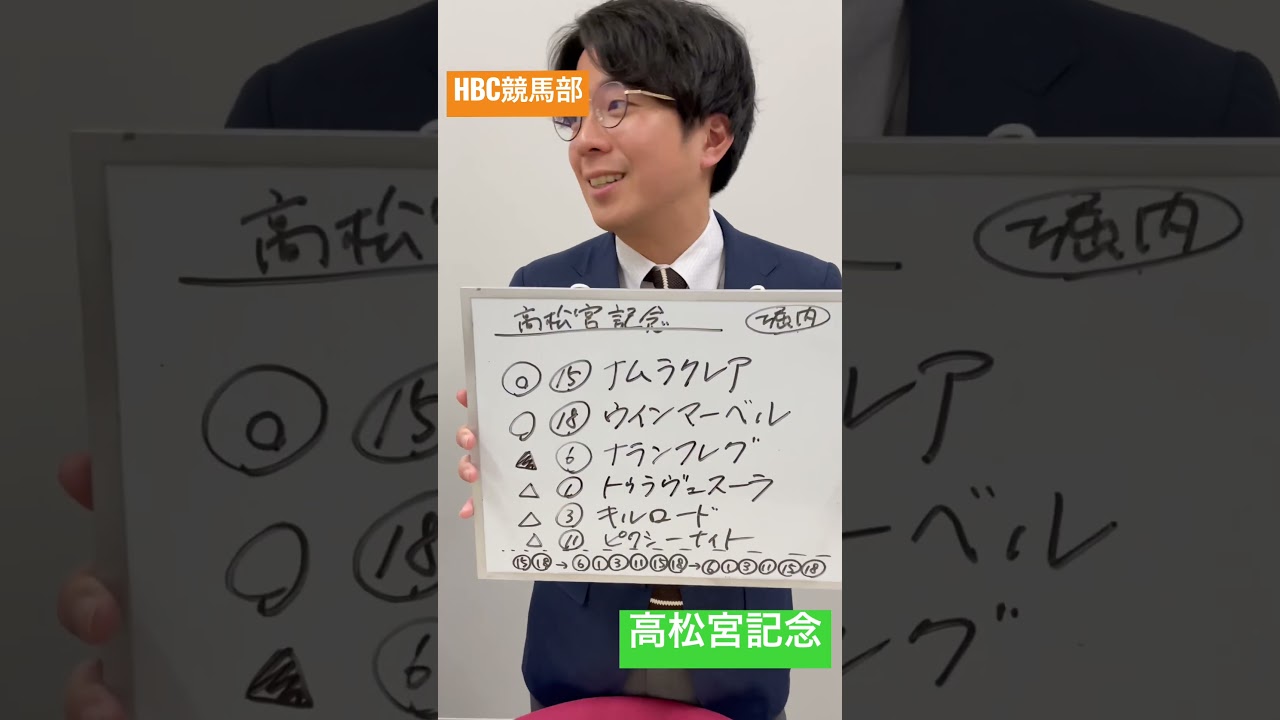 HBC競馬部
高松宮記念 堀内
◎ ⑮ ナムラクレア
○ ⑱ ウインマーベル
▲ ⑥ ナランフレグ
△ ① トゥラヴェスーラ
△ ③ キルロード
△ ⑪ ピクシーナイト
⑮⑱→⑥①③⑪⑮⑱→⑥①③⑪⑮⑱
高松宮記念